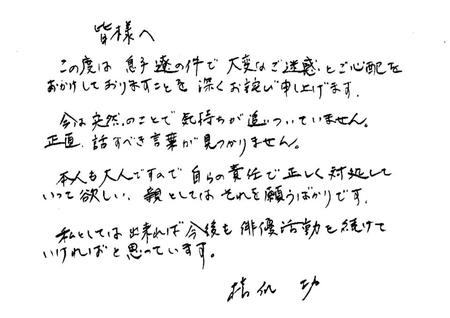 皆様へ
この度は 息子 遼の件で 大変なご迷惑とご心配を
おかけしておりますことを 深くお詫び申し上げます.
今は突然のことで 気持ちが追いついていません。
正直、話すべき言葉が見つかりません。
本人も大人ですので 自らの責任で正しく対処して
いって欲しい. 親としては それを願うばかりです.
私としては 出来れば今後も 俳優活動を続けて
いければと思っています。
橋爪 功